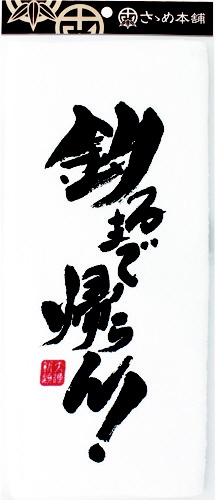 さゝめ本舗
釣るまで
帰らん!